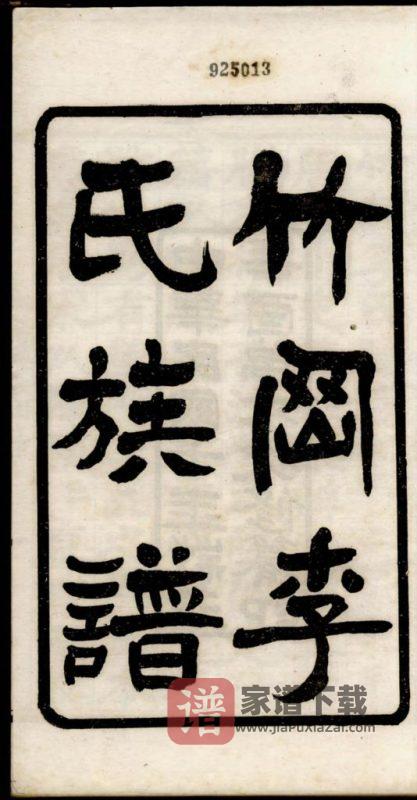 925013
竹岡李
氏族譜
谱 家谱下载
www.jiapuxiazai.com